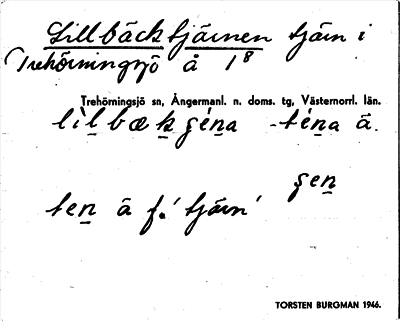 Lillbäckstjärnen tjärn i
Trehörningsjö å 1⁸
Trehörningsjö sn, Ångermanl. n. doms. tg, Västernorrl. län.
lìl̲bæk̲ʂén̲a - tén̲a ā.
ʂen̲
ten̲ ā f. 'tjärn'
TORSTEN BURGMAN 1946.